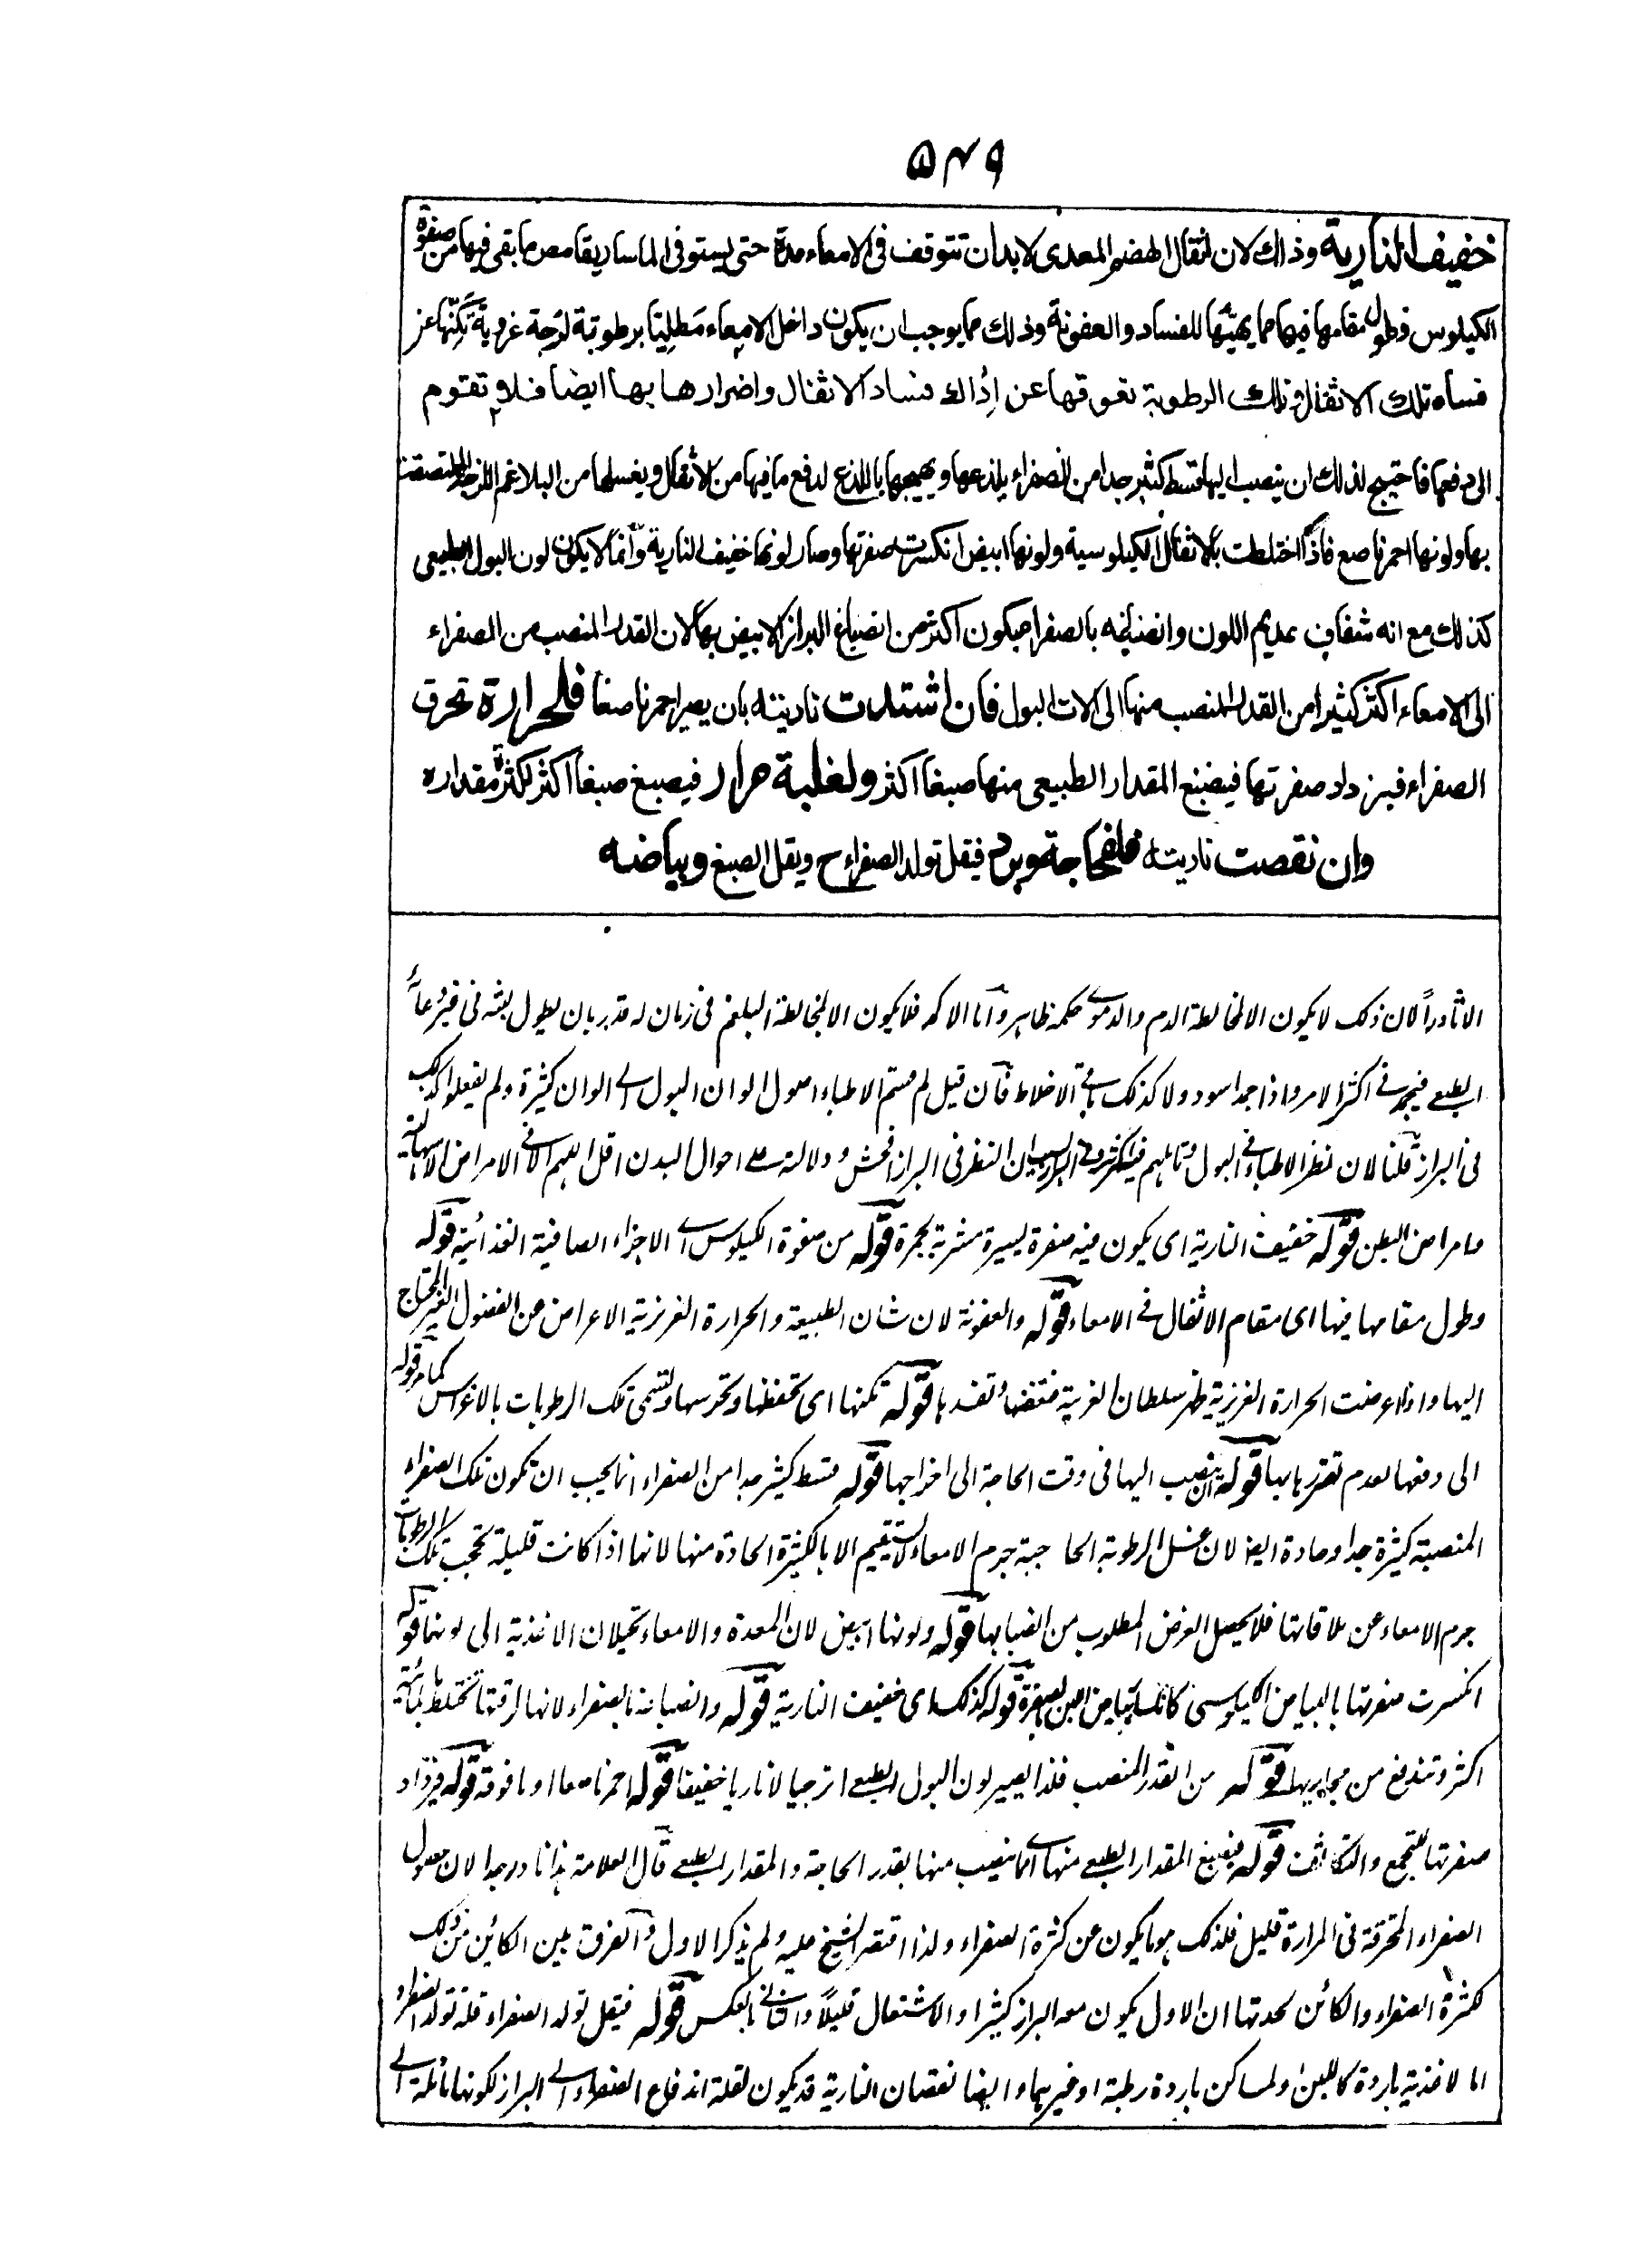 ۵۴۹
خفيف النارية وذلك لان اثقال الهضم المعدى لابد ان تتوقف فى الامعاء مدة حتى يستوفى الماساريقا مص ما بقى فيها من صفوة
الكيلوس وطول مقامها فيها مما يهيئها للفساد والعفونة وذلك مما يوجب ان يكون داخل الامعاء مطليا برطوبة لزجة غروية تكنها عن
فساد تلك الاثقال وتلك الرطوبة تعوقها عن ادراك فساد الاثقال واضرارها بها ايضا فلا تقوم
الى دفعها فاحتيج لذلك ان ينصب اليها قسط كثير جدا من الصفراء يلذعها ويهيجها باللذع لدفع ما فيها من الاثقال ويغسلها من البلاغم اللزجة الملتصقة
بها ولونها احمر ناصع فاذا اختلطت بالاثقال الكيلوسية ولونها ابيض انكسرت صفرتها وصار لونها خفيف النارية وانما لا يكون لون البول الطبيعى
كذلك مع انه شفاف عديم اللون وانصباغه بالصفراء يكون اكثر من انصباغ البراز الابيض بها لان القدر المنصب من الصفراء
الى الامعاء اكثر كثيرا من القدر المنصب منها الى الات البول فان اشتدت ناريته بان يصير احمر ناصعا فلحرارة تحرق
الصفراء فيزداد صفرتها فيصبغ المقدار الطبيعى منها صبغا اكثر ولغلبة مرار فيصبغ صبغا اكثر لكثرة مقداره
وان نقصت ناريته فلفجاجة وبرد فيقل تولد الصفراء ح ويقل الصبغ وبياضه
الا نادراً لان ذلك لا يكون الا لمخالطة الدم والدموى حكمه ظاهر واما الاكمه فلا يكون الا لمخالطة البلغم فى زمان له قدر بان يطول لبثه فى غير وعائه
الطبعى فيجمد فى اكثر الامر واذا جمد اسود ولا كذلك باقى الاخلاط فان قيل لم قسم الاطباء اصول الوان البول الى الوان كثيرة ولم يفعلوا كذلك
فى البراز قلنا لان نظر الاطباء فى البول وتاملهم فيه اكثر وفى البراز ان النظر فى البراز افحش ودلالته على احوال البدن اقل اللهم الا فى الامراض الاسهالية
وامراض البطن قوله خفيف النارية اى يكون فيه صفرة يسيرة مشربة بحمرة قوله من صفوة الكيلوس اى الاجزاء الصافية الغذائية قوله
وطول مقامها فيها اى مقام الاثقال فى الامعاء قوله والعفونة لان شان الطبيعة والحرارة الغريزية الاعراض عن الفضول الغير المحتاج
اليها واذا اعرضت الحرارة الغريزية ظهر سلطان الغريبة فتعفنها وتفسدها قوله تكنها اى تحفظها وتحرسها وتسمى تلك الرطوبات بالاغراس كما مر قوله
الى دفعها لعدم تضررها بها قوله ان ينصب اليها فى وقت الحاجة الى اخراجها قوله قسط كثير جدا من الصفراء انما يجب ان تكون تلك الصفراء
المنصبة كثيرة جدا وحادة ايضا لان غسل الرطوبة الحاجبة جرم الامعاء لا يستقيم الا بالكثيرة الحادة منها لانها اذا كانت قليلة تحجب تلك الرطوبات
جرم الامعاء عن ملاقاتها فلا يحصل الغرض المطلوب من انصبابها قوله ولونها ابيض لان المعدة والامعاء تحيلان الاغذية الى لونهما قوله
انكسرت صفرتها بالبياض الكيلوسى كانكسار بياض اللبن بالصفرة قوله كذلك اى خفيف النارية قوله وانصباغه بالصفراء لانها لرقتها تختلط بالمائية
اكثر وتندفع من مجاريها قوله من القدر المنصب فلذا يصير لون البول الطبعى اترجيا لا ناريا خفيفا قوله احمر ناصعا او ما فوقه قوله فيزداد
صفرتها للتجمع والتكاثف قوله فيصبغ المقدار الطبعى منها اى ما ينصب منها بقدر الحاجة والمقدار الطبعى قال العلامة هذا نادر جدا لان حصول
الصفراء المحترقة فى المرارة قليل فلذلك هو ما يكون عن كثرة الصفراء ولذا اقتصر الشيخ عليه ولم يذكر الاول والفرق بين الكائن من ذلك
لكثرة الصفراء والكائن لحدتها ان الاول يكون معه البراز كثيرا والاشتعال قليلاً والثانى بالعكس قوله فيقل تولد الصفراء قلة تولد الصفراء
اما لاغذية باردة كاللبن ولمساكن باردة رطبة او غيرهما وايضا نقصان النارية قد يكون لقلة اندفاع الصفراء الى البراز لكونها مائلة الى